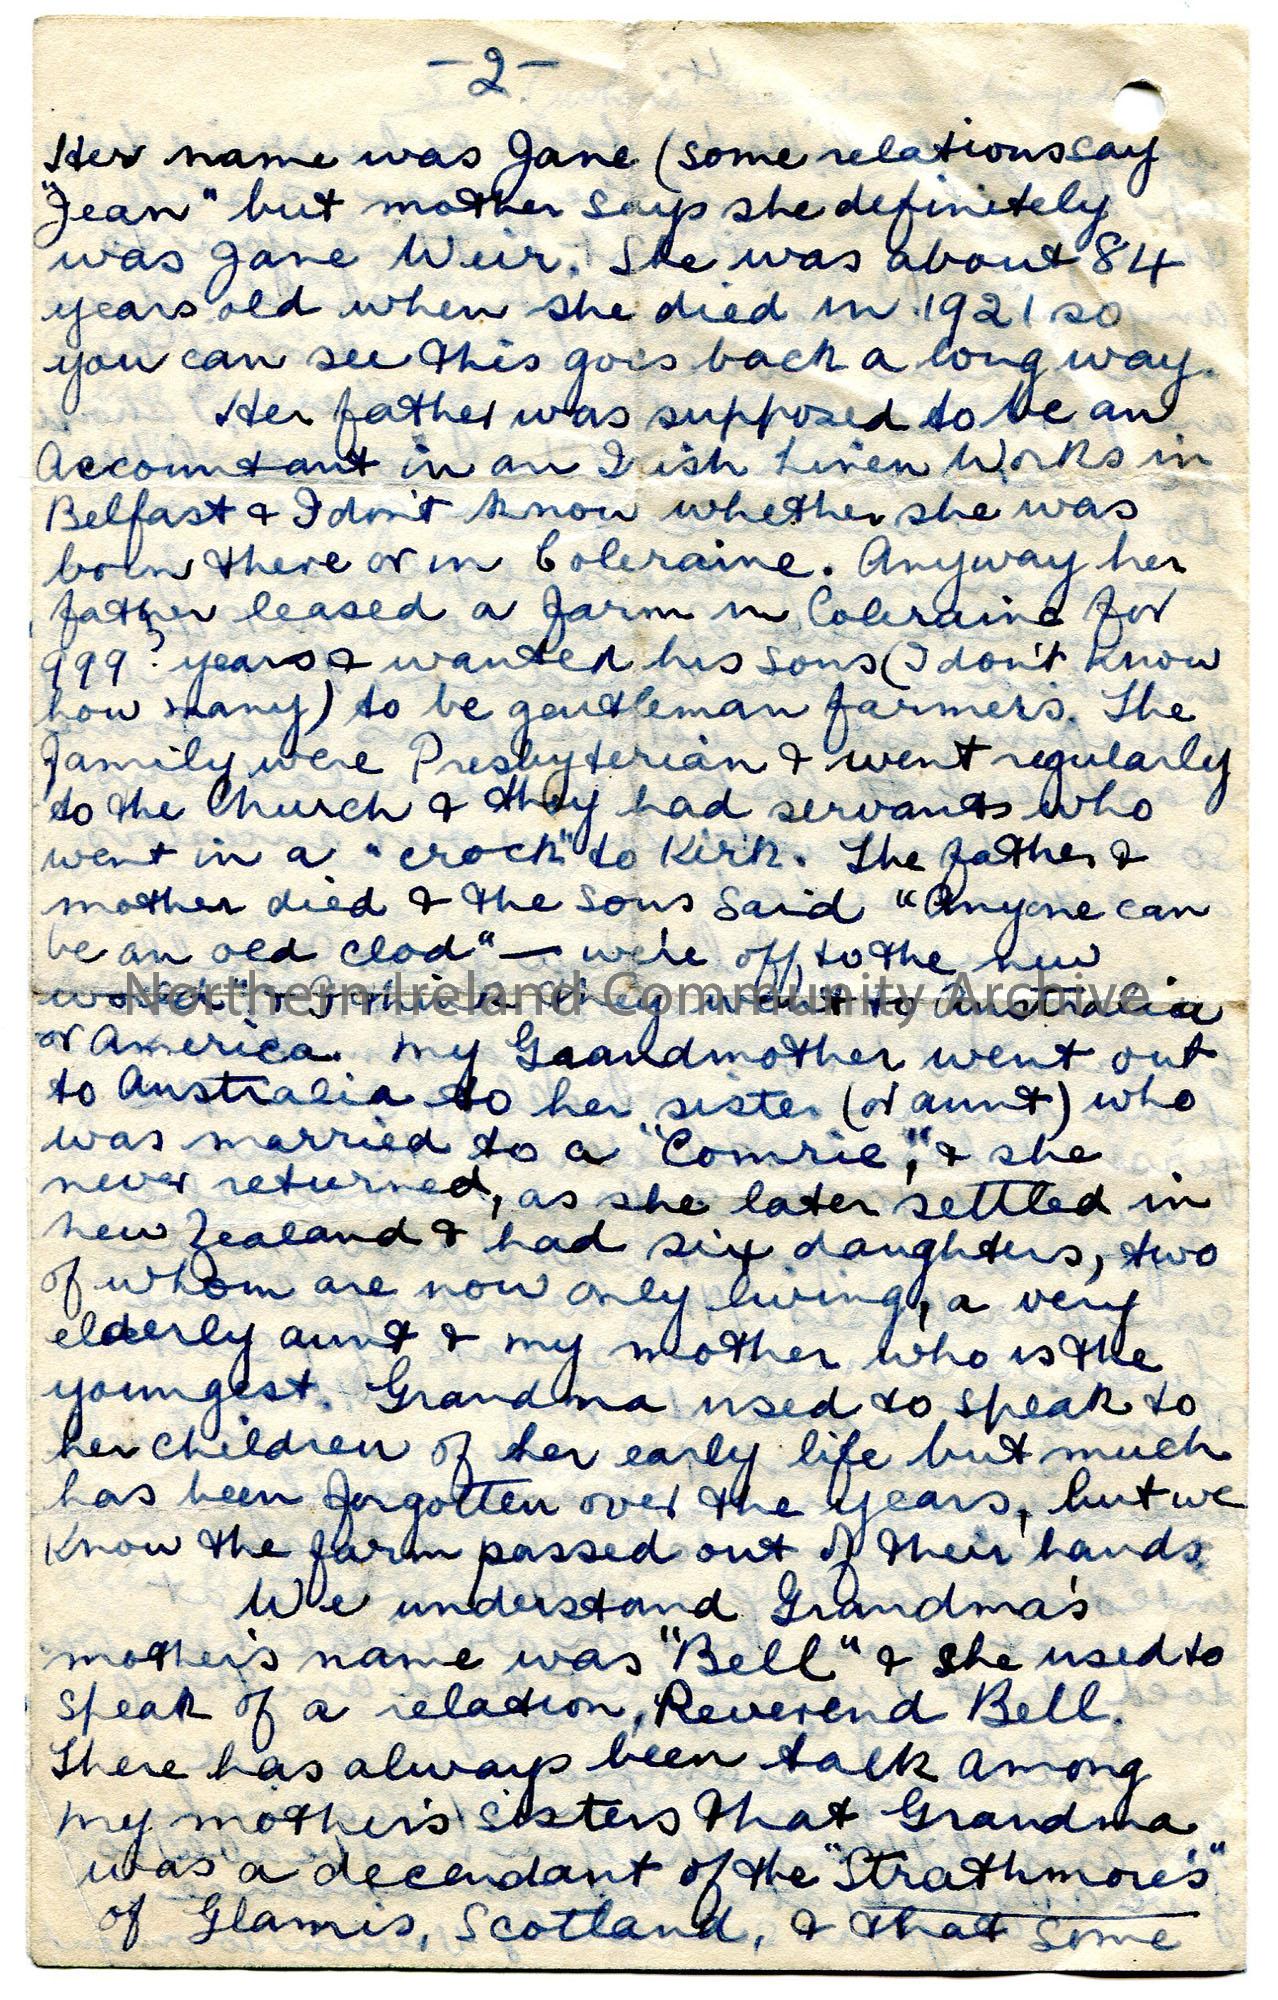 -2-
Her name was Jane (some relations say
"Jean" but mother says she definitely
was Jane Weir. She was about 84
years old when she died in 1921 so
you can see this goes back a long way.
Her father was supposed to be an
Accountant in an Irish Linen Works in
Belfast & I don't know whether she was
born there or in Coleraine. Anyway her
father leased a farm in Coleraine for
999? years & wanted his sons (I don't know
how many) to be gentleman farmers. The
family were Presbyterian & went regularly
to the Church & they had servants who
went in a "crock" to Kirk. The father &
mother died & the sons said "Anyone can
be an old clod" — we're off to the new
world" & I think they went to Australia
or America. My Grandmother went out
to Australia to her sister (or aunt) who
was married to a "Comrie", & she
never returned, as she later settled in
New Zealand & had six daughters, two
of whom are now only living, a very
elderly aunt & my mother who is the
youngest. Grandma used to speak to
her children of her early life but much
has been forgotten over the years, but we
know the farm passed out of their hands.
We understand Grandma's
mother's name was "Bell" & she used to
speak of a relation, Reverend Bell.
There has always been talk among
my mother's sisters that Grandma
was a decendant of the "Strathmore's"
of Glamis, Scotland, & that some
Northern Ireland Community Archive